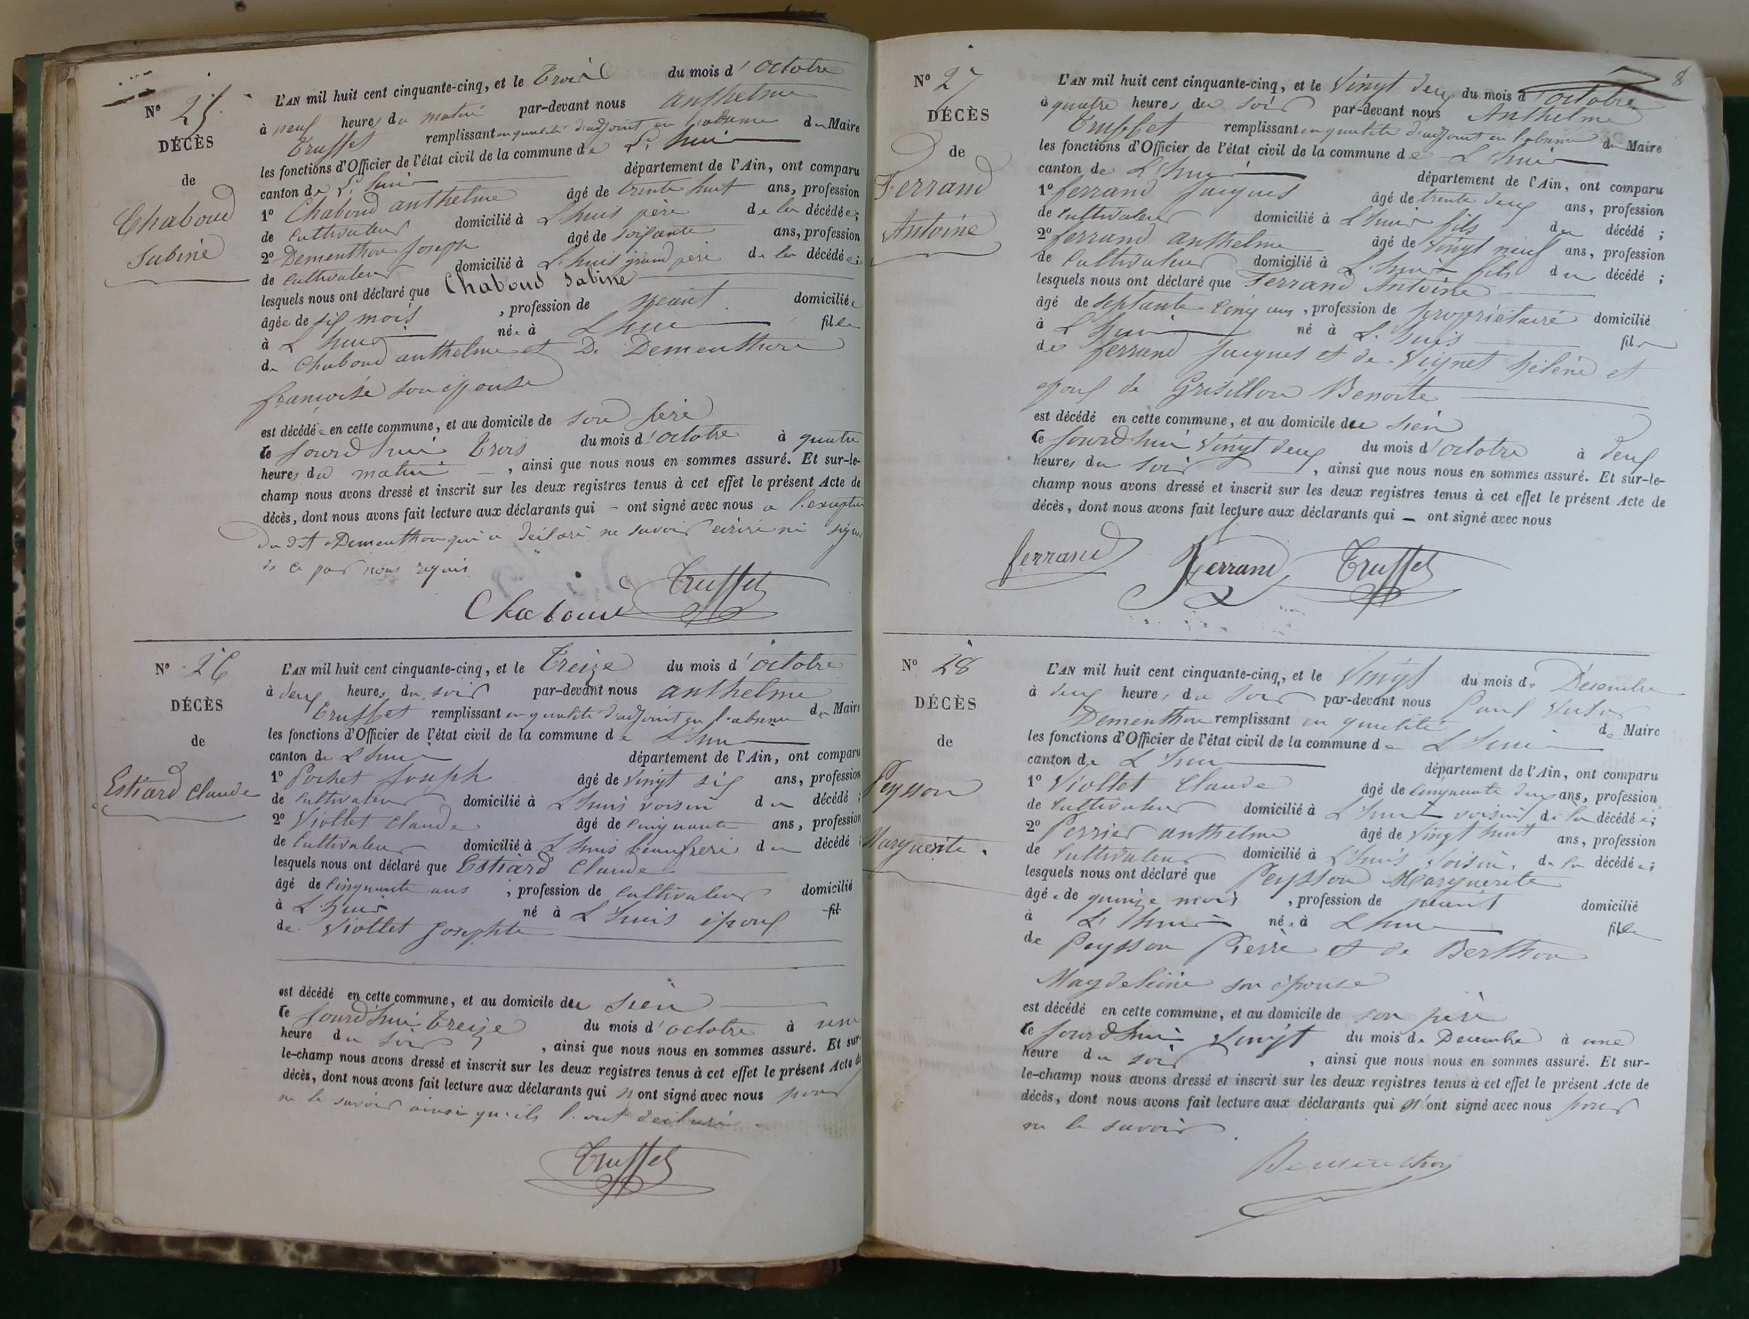 N° 25
DÉCÈS
de
Chaboud
Sabine
L'AN mil huit cent cinquante-cinq, et le Trois du mois d'octobre
à neuf heures du matin par-devant nous anthelme
Truffet remplissant en qualité d'adjoint en l'absence du Maire
les fonctions d'Officier de l'état civil de la commune de L'huis
canton de L'huis département de l'Ain, ont comparu
1° Chaboud anthelme âgé de trente huit ans, profession
de cultivateur domicilié à L'huis père de la décédée;
2° Dementhon Joseph âgé de soixante ans, profession
de cultivateur domicilié à L'huis grand père de la décédée;
lesquels nous ont déclaré que Chaboud Sabine
âgée de six mois, profession de néant domiciliée
à L'huis née à L'huis fille
de Chaboud anthelme et De Dementhon
françoise son épouse
est décédée en cette commune, et au domicile de son père
le Jourd'hui trois du mois d'octobre à quatre
heures du matin, ainsi que nous nous en sommes assuré. Et sur-le-
champ nous avons dressé et inscrit sur les deux registres tenus à cet effet le présent Acte de
décès, dont nous avons fait lecture aux déclarants qui – ont signé avec nous a l'exception
du dit Dementhon qui a déclaré ne savoir écrire ni signer
de ce par nous requis
Chaboud Truffet
N° 26
DÉCÈS
de
Estiard Claude
L'AN mil huit cent cinquante-cinq, et le Treize du mois d'octobre
à deux heures du soir par-devant nous anthelme
Truffet remplissant en qualité d'adjoint en l'absence du Maire
les fonctions d'Officier de l'état civil de la commune de L'huis
canton de L'huis département de l'Ain, ont comparu
1° Pochet Joseph âgé de vingt six ans, profession
de cultivateur domicilié à L'huis voisin du décédé;
2° Viollet Claude âgé de cinquante ans, profession
de cultivateur domicilié à L'huis beaufrère du décédé;
lesquels nous ont déclaré que Estiard Claude
âgé de cinquante ans, profession de cultivateur domicilié
à L'huis né à L'huis époux fil
de Viollet Josephte
est décédé en cette commune, et au domicile du sien
le Jourd'hui treize du mois d'octobre à une
heure du soir, ainsi que nous nous en sommes assuré. Et sur-
le-champ nous avons dressé et inscrit sur les deux registres tenus à cet effet le présent Acte de
décès, dont nous avons fait lecture aux déclarants qui n'ont signé avec nous pour
ne le savoir ainsi qu'ils l'ont déclaré
Truffet
8
N° 27
DÉCÈS
de
Ferrand
Antoine
L'AN mil huit cent cinquante-cinq, et le vingt deux du mois d'octobre
à quatre heures du soir par-devant nous Anthelme
Truffet remplissant en qualité d'adjoint en l'absence du Maire
les fonctions d'Officier de l'état civil de la commune de L'huis
canton de L'huis département de l'Ain, ont comparu
1° ferrand Jacques âgé de trente deux ans, profession
de cultivateur domicilié à L'huis fils du décédé;
2° ferrand anthelme âgé de vingt neuf ans, profession
de cultivateur domicilié à L'huis fils du décédé;
lesquels nous ont déclaré que Ferrand Antoine
âgé de septante cinq ans, profession de propriétaire domicilié
à L'huis né à L'huis fils
de ferrand Jacques et de Vignet hélène et
époux de Grisillon Benoite
est décédé en cette commune, et au domicile du sien
le Jourd'hui vingt deux du mois d'octobre à deux
heures du soir, ainsi que nous nous en sommes assuré. Et sur-le-
champ nous avons dressé et inscrit sur les deux registres tenus à cet effet le présent Acte de
décès, dont nous avons fait lecture aux déclarants qui – ont signé avec nous
ferrand Ferrand Truffet
N° 28
DÉCÈS
de
Peysson
Marguerite.
L'AN mil huit cent cinquante-cinq, et le vingt du mois de Décembre
à deux heures du soir par-devant nous Paul
Dementhon remplissant en qualité de Maire
les fonctions d'Officier de l'état civil de la commune de L'huis
canton de L'huis département de l'Ain, ont comparu
1° Viollet Claude âgé de cinquante deux ans, profession
de cultivateur domicilié à L'huis voisin de la décédée;
2° Perrier anthelme âgé de vingt huit ans, profession
de cultivateur domicilié à L'huis voisin. de la décédée;
lesquels nous ont déclaré que Peysson Marguerite
âgée de quinze mois, profession de néant domicilié
à L'huis née à L'huis fille
de Peysson Pierre et de Berthon
Magdeleine son épouse
est décédé en cette commune, et au domicile de son père
le Jourd'hui vingt du mois de Décembre à une
heure du soir, ainsi que nous nous en sommes assuré. Et sur-
le-champ nous avons dressé et inscrit sur les deux registres tenus à cet effet le présent Acte de
décès, dont nous avons fait lecture aux déclarants qui n'ont signé avec nous pour
ne le savoir.
Dementhon